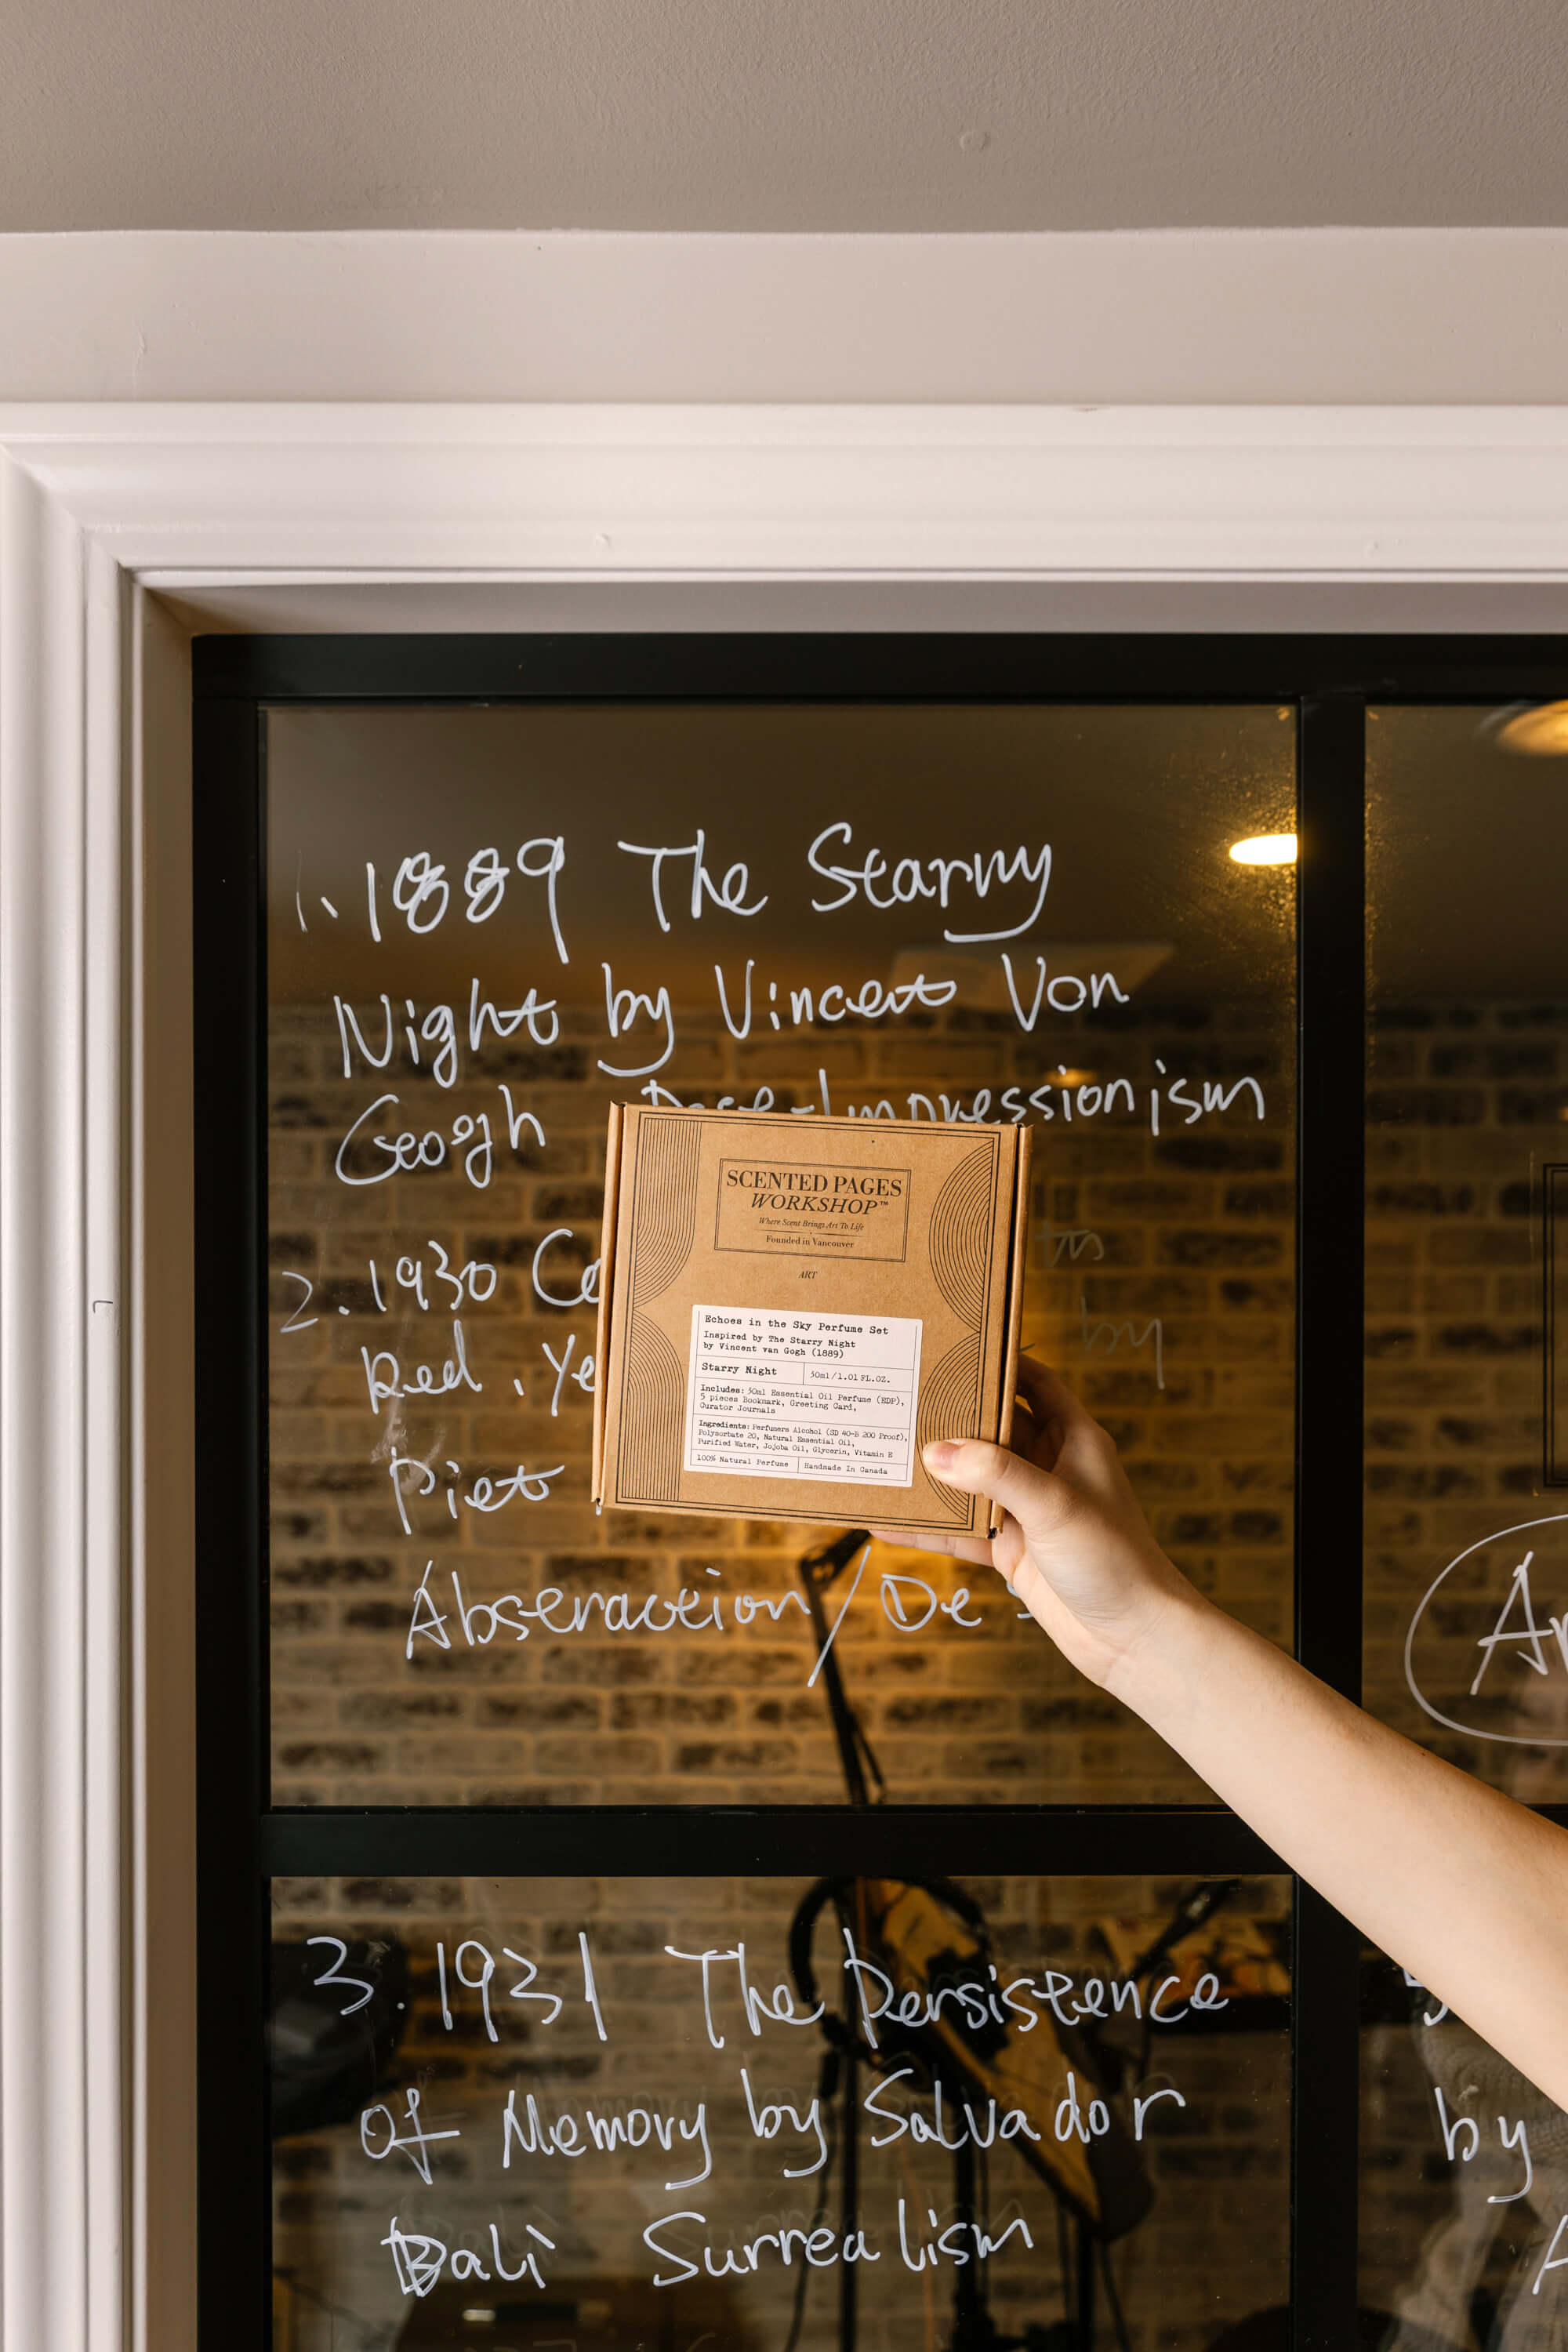 1. 1889 The Starry
Night by Vincent Von
Geogh Post-Impressionism
2. 1930
Red, Ye
by
Piet
Abstraction / De S
SCENTED PAGES
WORKSHOP™
Where Scent Brings Art To Life
Founded in Vancouver
ART
Echoes in the Sky Perfume Set
Inspired by The Starry Night
by Vincent van Gogh (1889)
Starry Night 30ml/1.01 FL.OZ.
Includes: 30ml Essential Oil Perfume (EDP),
5 pieces Bookmark, Greeting Card,
Curator Journals
Ingredients: Perfumers Alcohol (SD 40-B 200 Proof),
Polysorbate 20, Natural Essential Oil,
Purified Water, Jojoba Oil, Glycerin, Vitamin E
100% Natural Perfume Handmade In Canada
3. 1931 The Persistence
of Memory by Salvador
Dali Surrealism
by